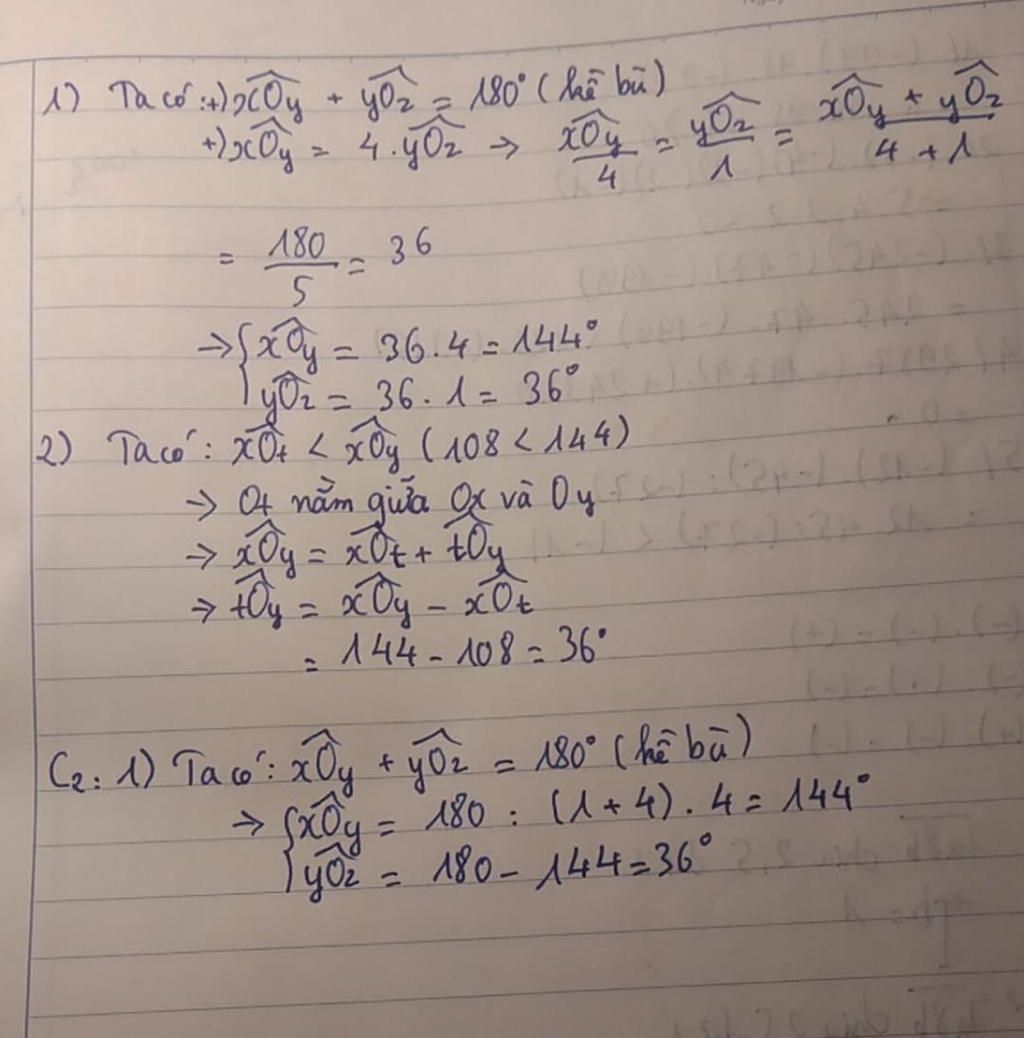 1) Ta có: +) xÔy + yÔz = 180° (kề bù)
+) xÔy = 4 . yÔz → xÔy/4 = yÔz/1 = (xÔy + yÔz)/(4 + 1)
= 180/5 = 36
→ { xÔy = 36 . 4 = 144°
yÔz = 36 . 1 = 36°
2) Ta có: xÔt < xÔy (108 < 144)
→ Ot nằm giữa Ox và Oy
→ xÔy = xÔt + tÔy
→ tÔy = xÔy - xÔt
= 144 - 108 = 36°
C2: 1) Ta có: xÔy + yÔz = 180° (kề bù)
→ { xÔy = 180 : (1 + 4) . 4 = 144°
yÔz = 180 - 144 = 36°